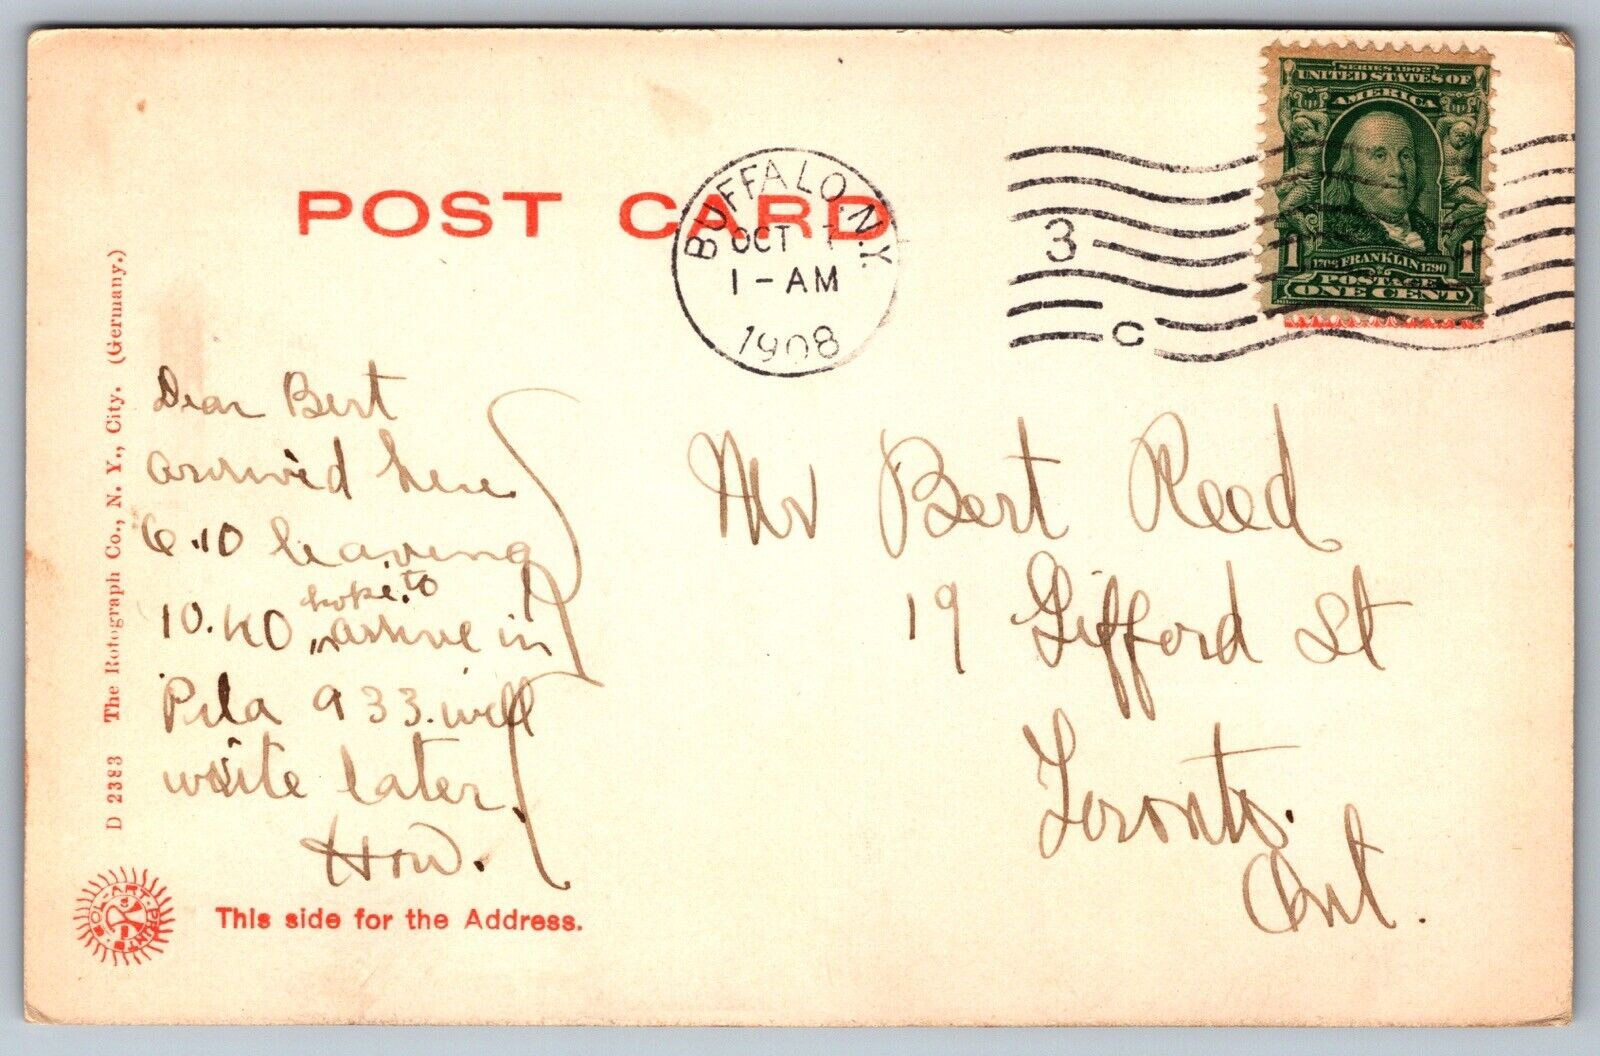 POST CARD
BUFFALO, N.Y.
OCT 7
1-AM
1908
3
C
SERIES 1902
UNITED STATES OF
AMERICA
1 1706 FRANKLIN 1790 1
POSTAGE
ONE CENT
D 2383 The Rotograph Co., N. Y., City. (Germany.)
Dear Bert
arrived here
6.10 leaving
hope to
10.40 arrive in
Pila 933. will
write later.
How.
Mr Bert Reed
19 Gifford St
Toronto.
Ont.
SOL-ART-PRINTS
This side for the Address.